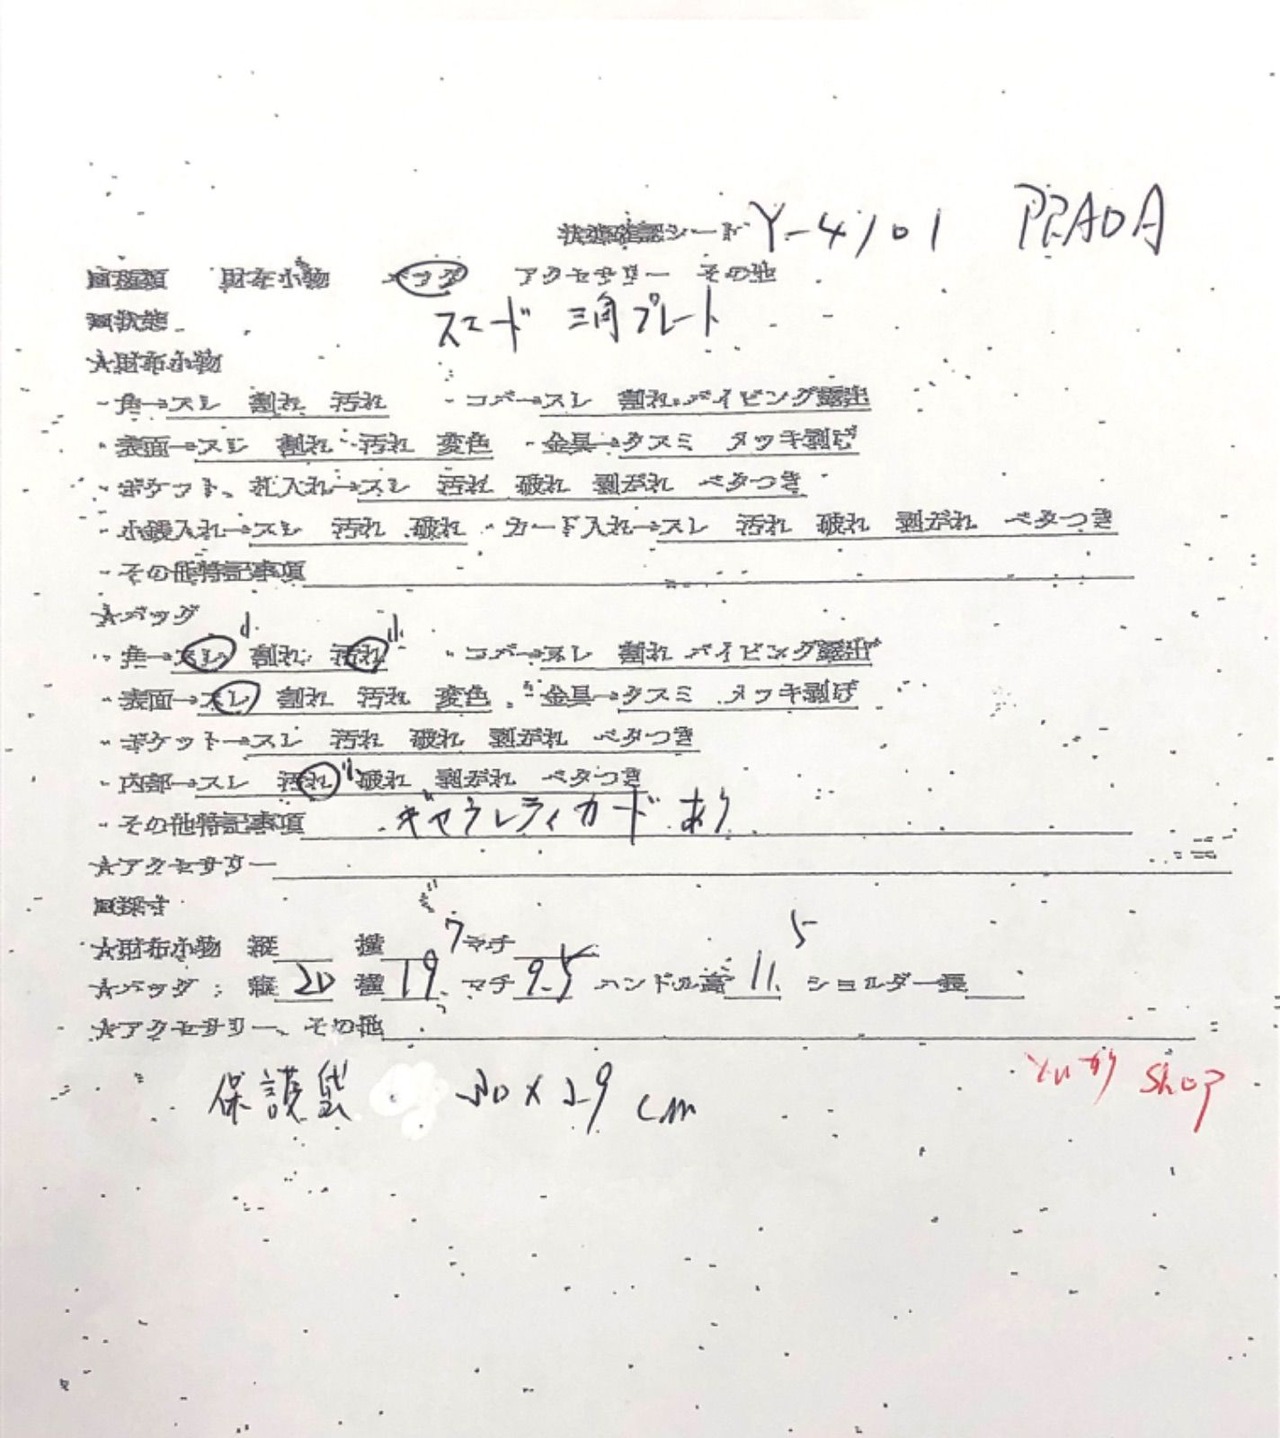 状態確認シート Y-4101 PRADA
■種類 財布小物 バッグ アクセサリー その他
■状態 スエード 三角プレート
★財布小物
・角→スレ 割れ 汚れ ・コバ→スレ 割れ パイピング露出
・表面→スレ 割れ 汚れ 変色 ・金具→クスミ メッキ剥げ
・ポケット、札入れ→スレ 汚れ 破れ 剥がれ ベタつき
・小銭入れ→スレ 汚れ 破れ ・カード入れ→スレ 汚れ 破れ 剥がれ ベタつき
・その他特記事項
★バッグ
・角→スレ 小 割れ 汚れ 小 ・コバ→スレ 割れ パイピング露出
・表面→スレ 割れ 汚れ 変色 ・金具→クスミ メッキ剥げ
・ポケット→スレ 汚れ 破れ 剥がれ ベタつき
・内部→スレ 汚れ 小 破れ 剥がれ ベタつき
・その他特記事項 ギャランティカード あり
★アクセサリー
■採寸
★財布小物 縦 横 マチ
★バッグ : 縦 20 横 19.7 マチ 9.5 ハンドル高 11.5 ショルダー長
★アクセサリー、その他
保護袋 30×29 cm
shop